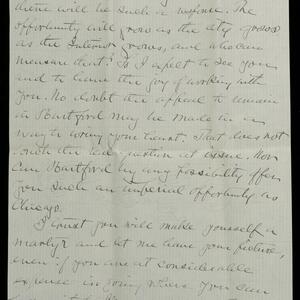 there will be such a response. The
opportunity will grow as the city grows
as the Interior grows, and who can
measure that? So I expect to see you
and to have the joy of working with
you. No doubt the appeal to remain
in Hartford may be made in a
way to your heart. That does not
touch the question at issue. Nor
can Hartford by any possibility offer
you such an imperial opportunity as
Chicago.
I trust you will make yourself a
martyr and let me have your picture,
even if you are at considerable
expense in going where you can